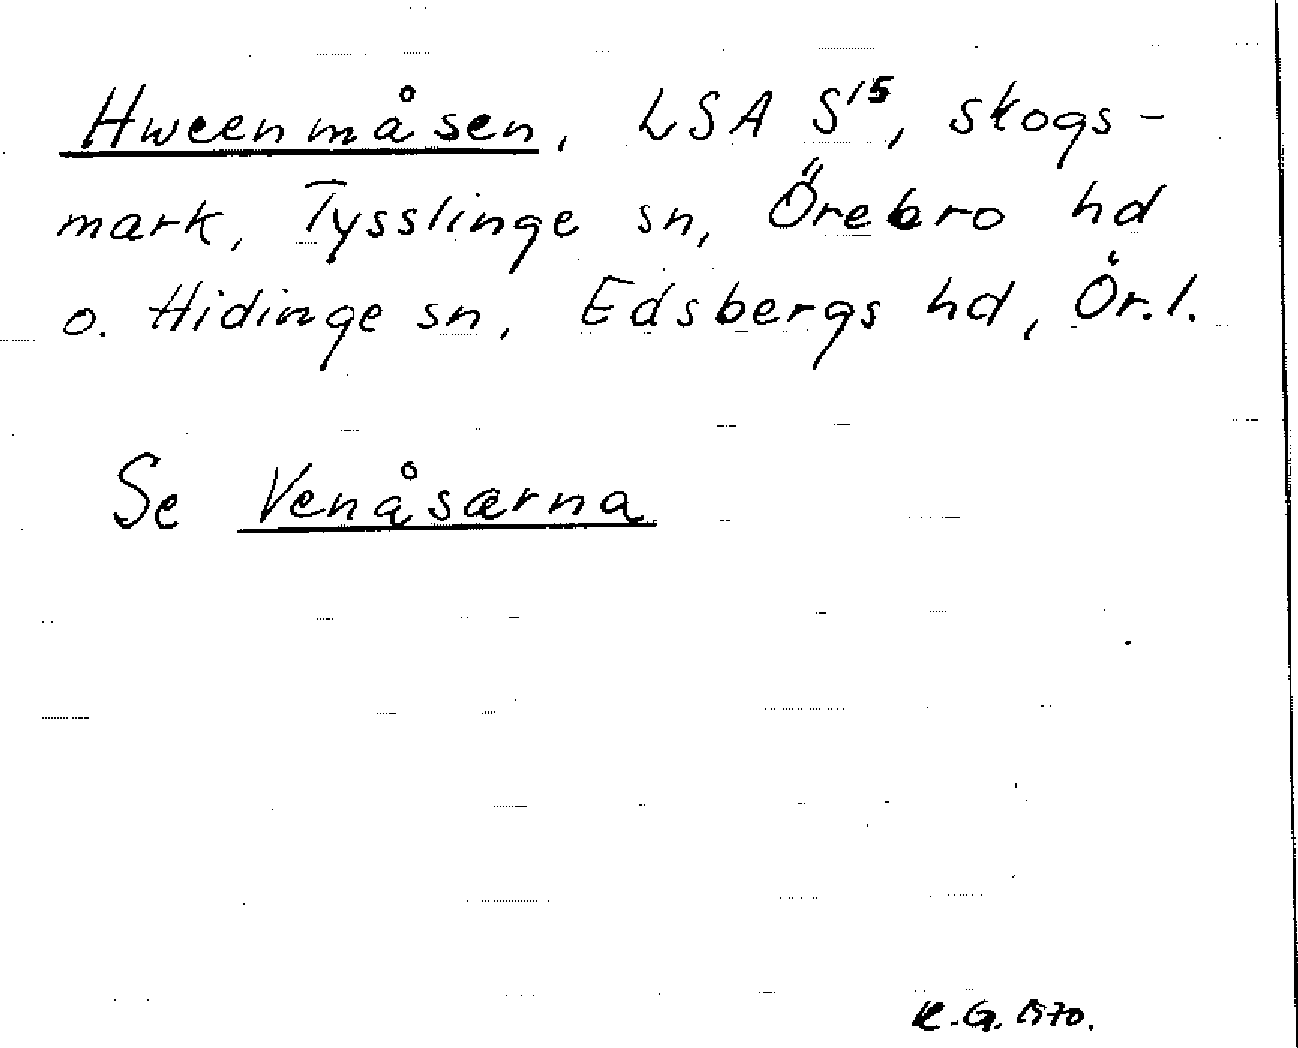 Hweenmåsen, LSA S¹⁵, skogs-
mark, Tysslinge sn, Örebro hd
o. Hidinge sn, Edsbergs hd, Ör.l.
Se Venåsarna
K.G. 1970.